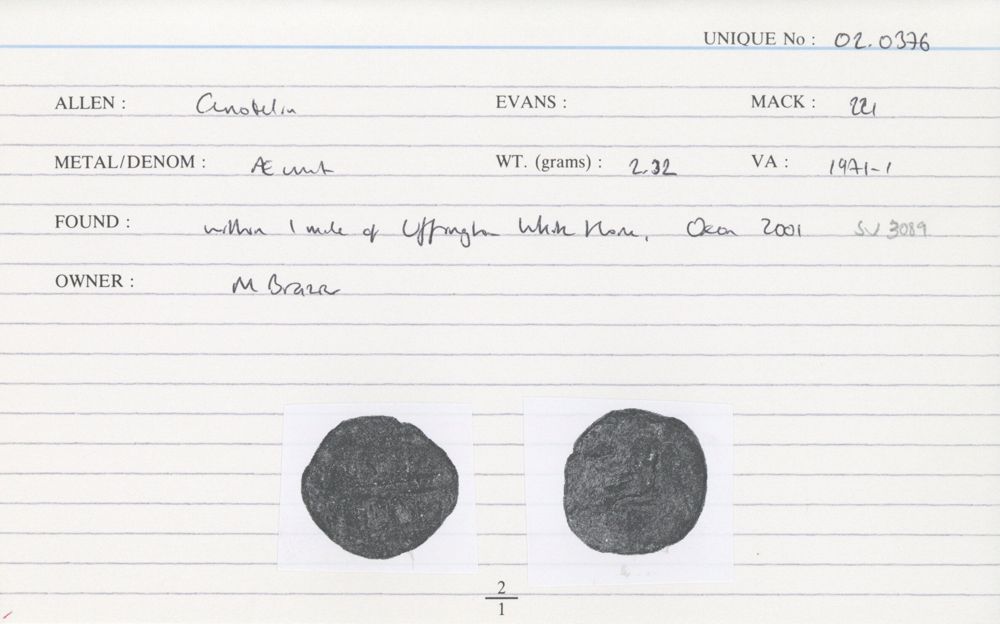 UNIQUE No : 02.0376
ALLEN : Cunobelin EVANS : MACK : 221
METAL/DENOM : Æ unit WT. (grams) : 2.32 VA : 1971-1
FOUND : within 1 mile of Uffington White Horse, Oxon 2001 SU 3089
OWNER : M
2
1